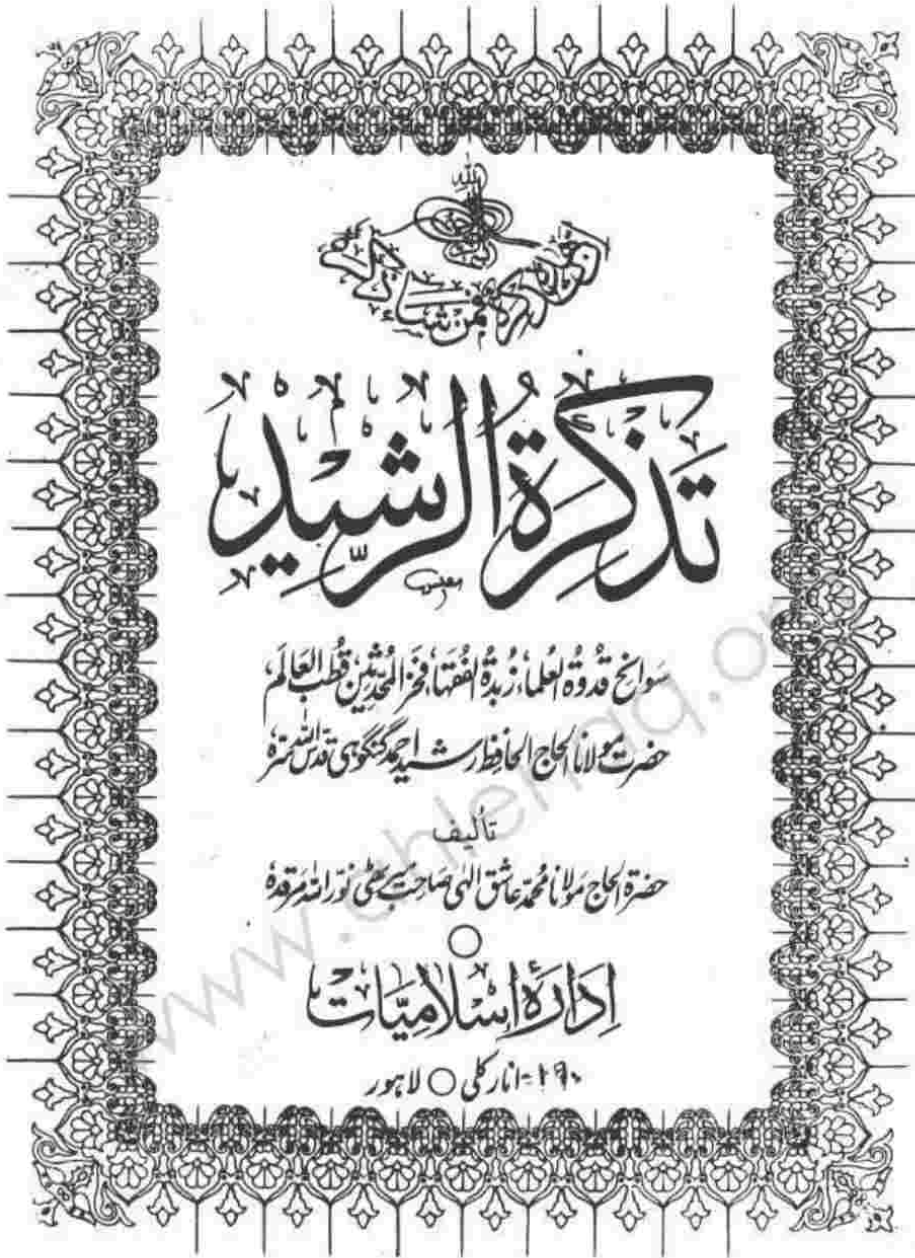 تَذكِرَةُ الرَّشِيْد
سَوانح قدوةُ العُلما، زُبدةُ الفُقہا، فخرُ المُحدّثین، قُطبُ العَالم
حضرت مولانا الحاج الحافظ رشید احمد گنگوہی قدّس اللہ سرّہٗ
تألیف
حضرۃ الحاج مولانا محمد عاشق الٰہی صاحب میرٹھی نوّر اللہ مرقدہٗ
اِدارۂ اِسلامیات
۱۹۰-انارکلی ○ لاہور
www.ahlehaq.or